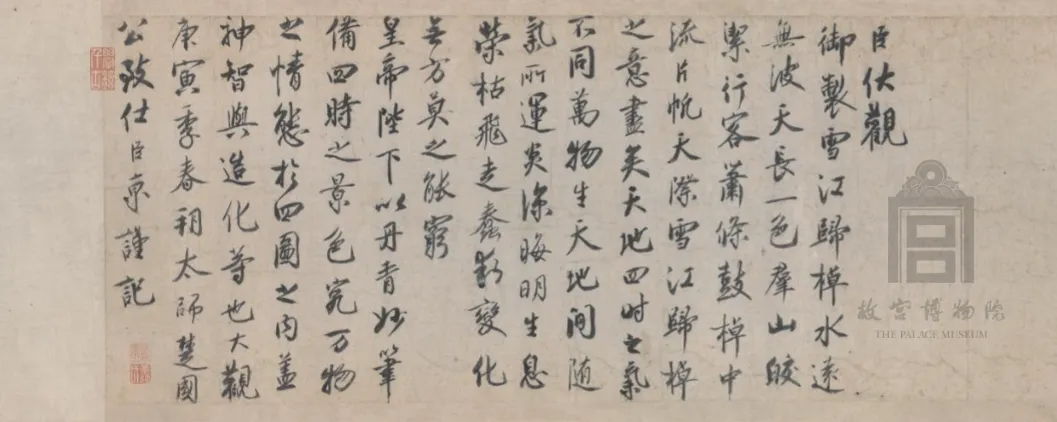 臣伏觀
御製雪江歸棹水遠
無波天長一色羣山皎
潔行客蕭條鼓棹中
流片帆天際雪江歸棹
之意盡矣天地四时之氣
不同萬物生天地間随
氣所運炎涼晦明生息
榮枯飛走蠢動變化
无方莫之能窮
皇帝陛下以丹青妙筆
備四時之景色究万物
之情態於四圖之内盖
神智與造化等也大觀
庚寅季春朔太師楚國
公致仕臣京謹記
故宫博物院
THE PALACE MUSEUM